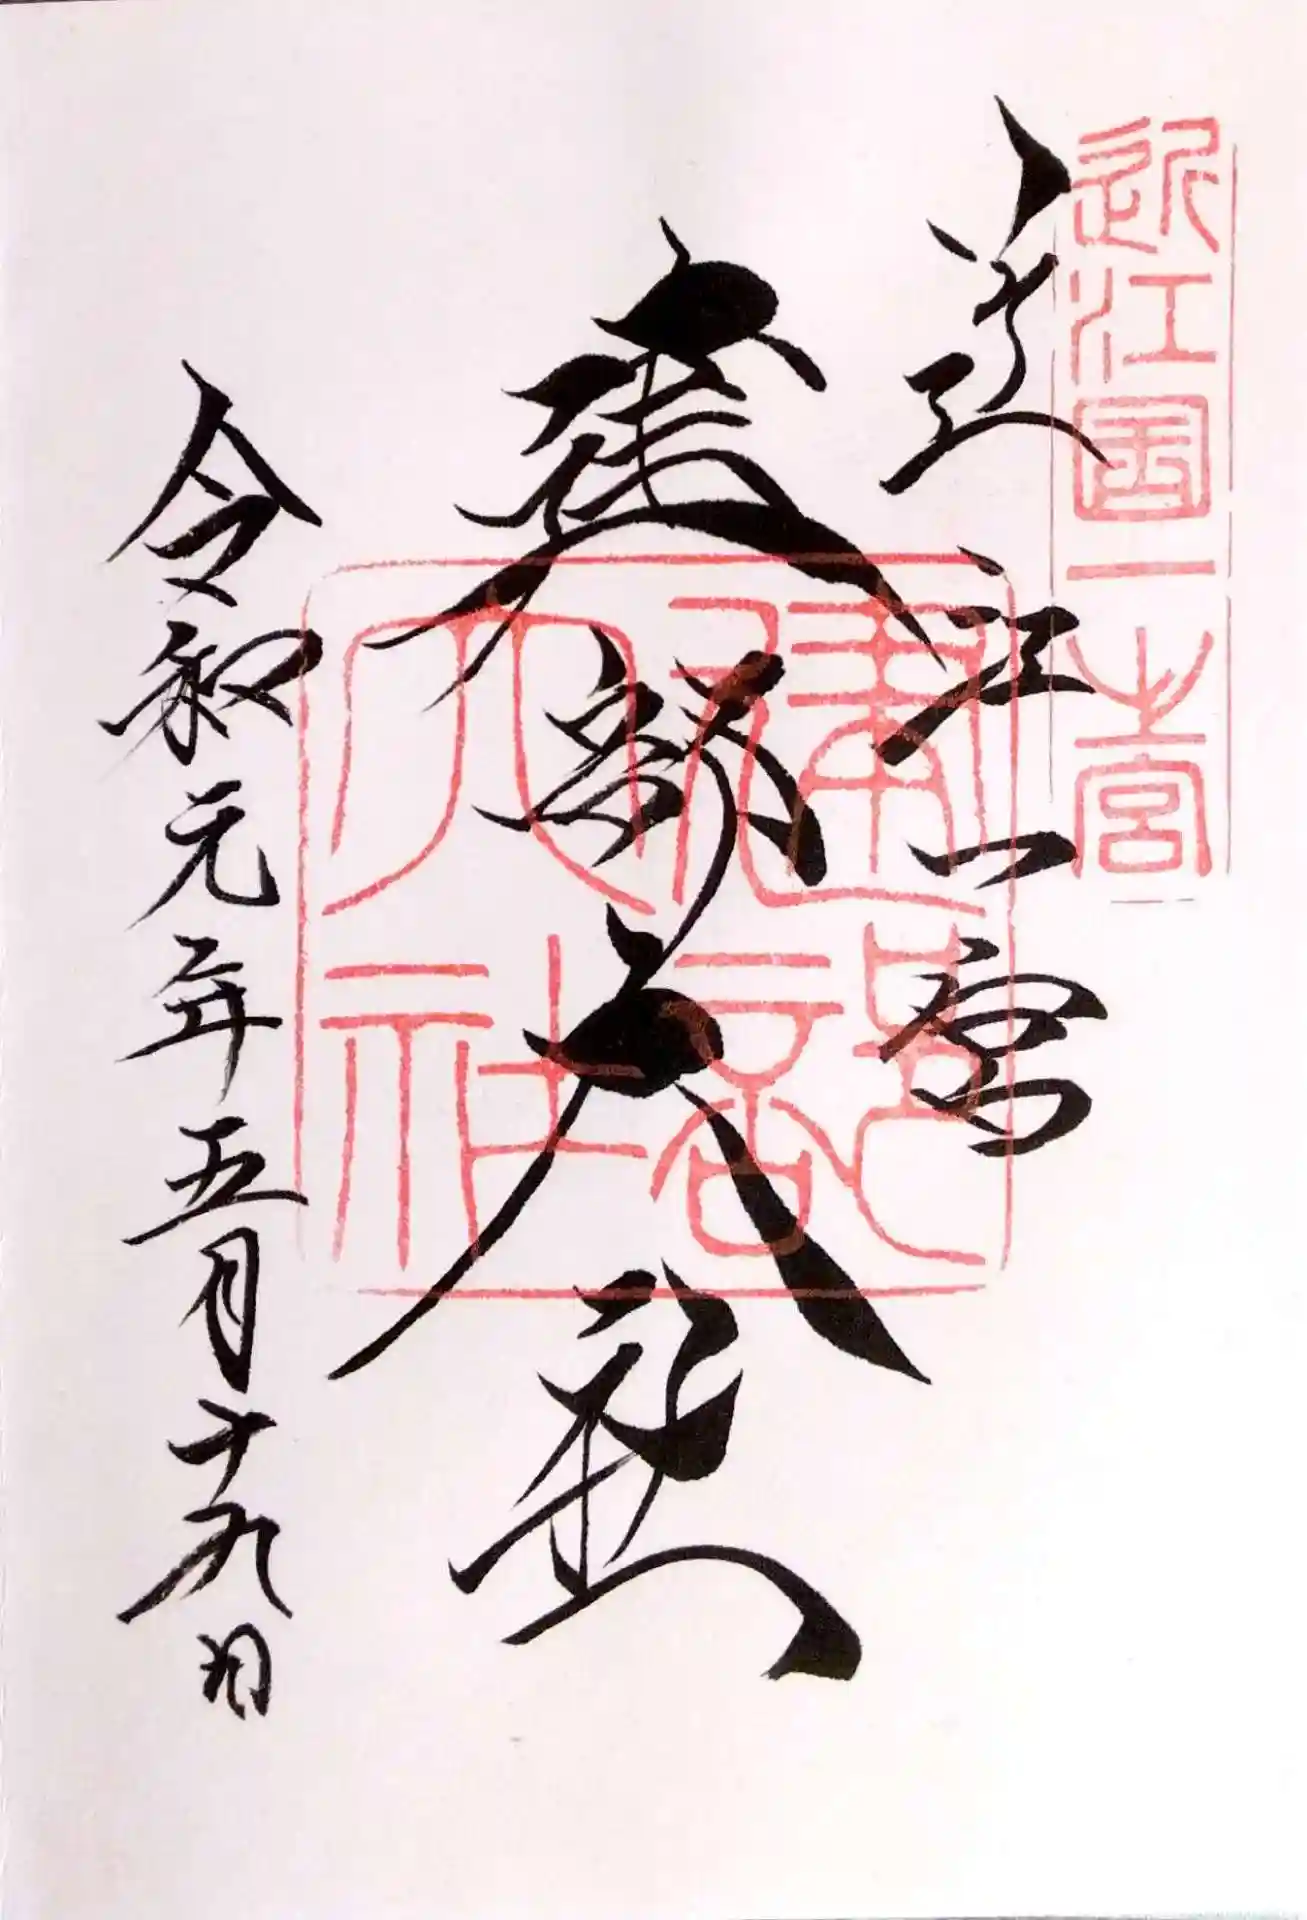 近江国一之宮
近江一宮
建部大社
建部大社
令和元年五月十九日